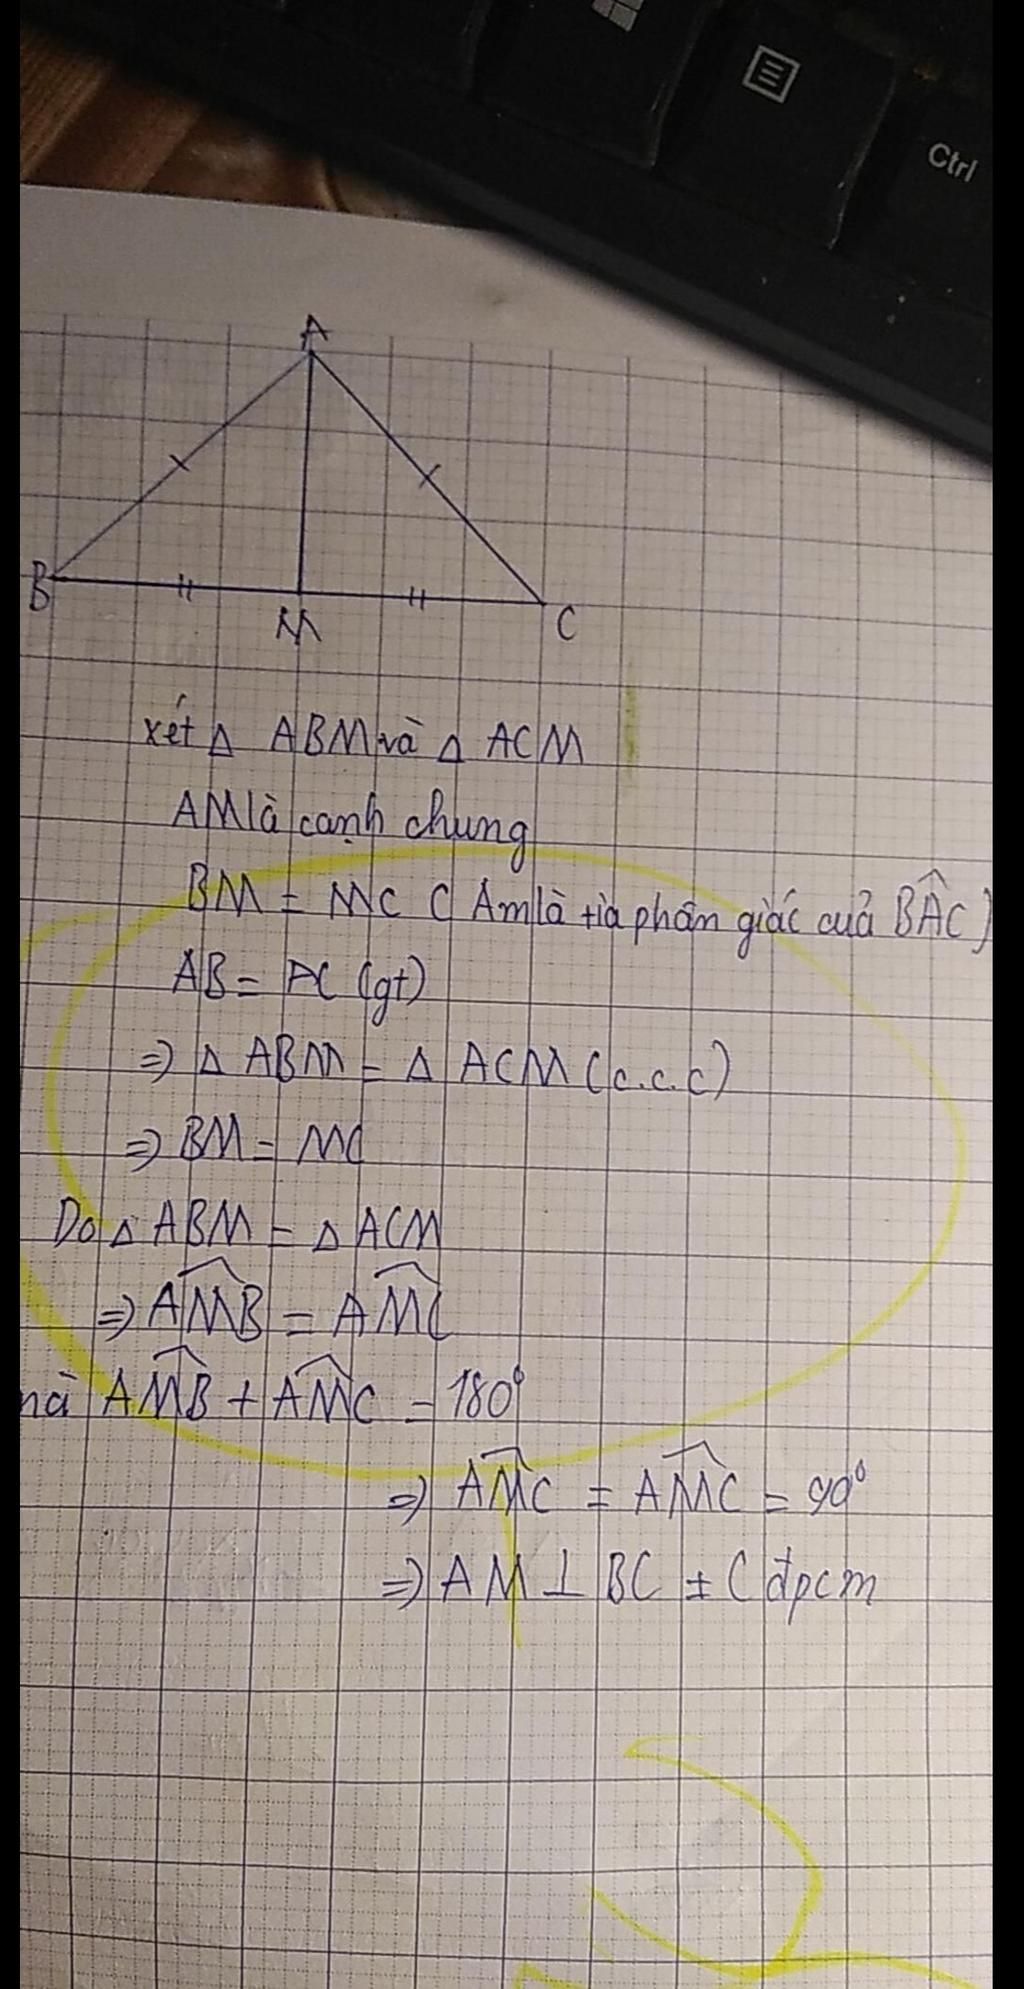 Ctrl
A
B
M
C
xét Δ ABM và Δ ACM
AM là cạnh chung
BM = MC ( Am là tia phân giác cuả BAC )
AB = AC (gt)
=> Δ ABM = Δ ACM (c.c.c)
=> BM = MC
Do Δ ABM = Δ ACM
=> AMB = AMC
mà AMB + AMC = 180°
=> AMC = AMC = 90°
=> AM ⊥ BC ± C đpcm